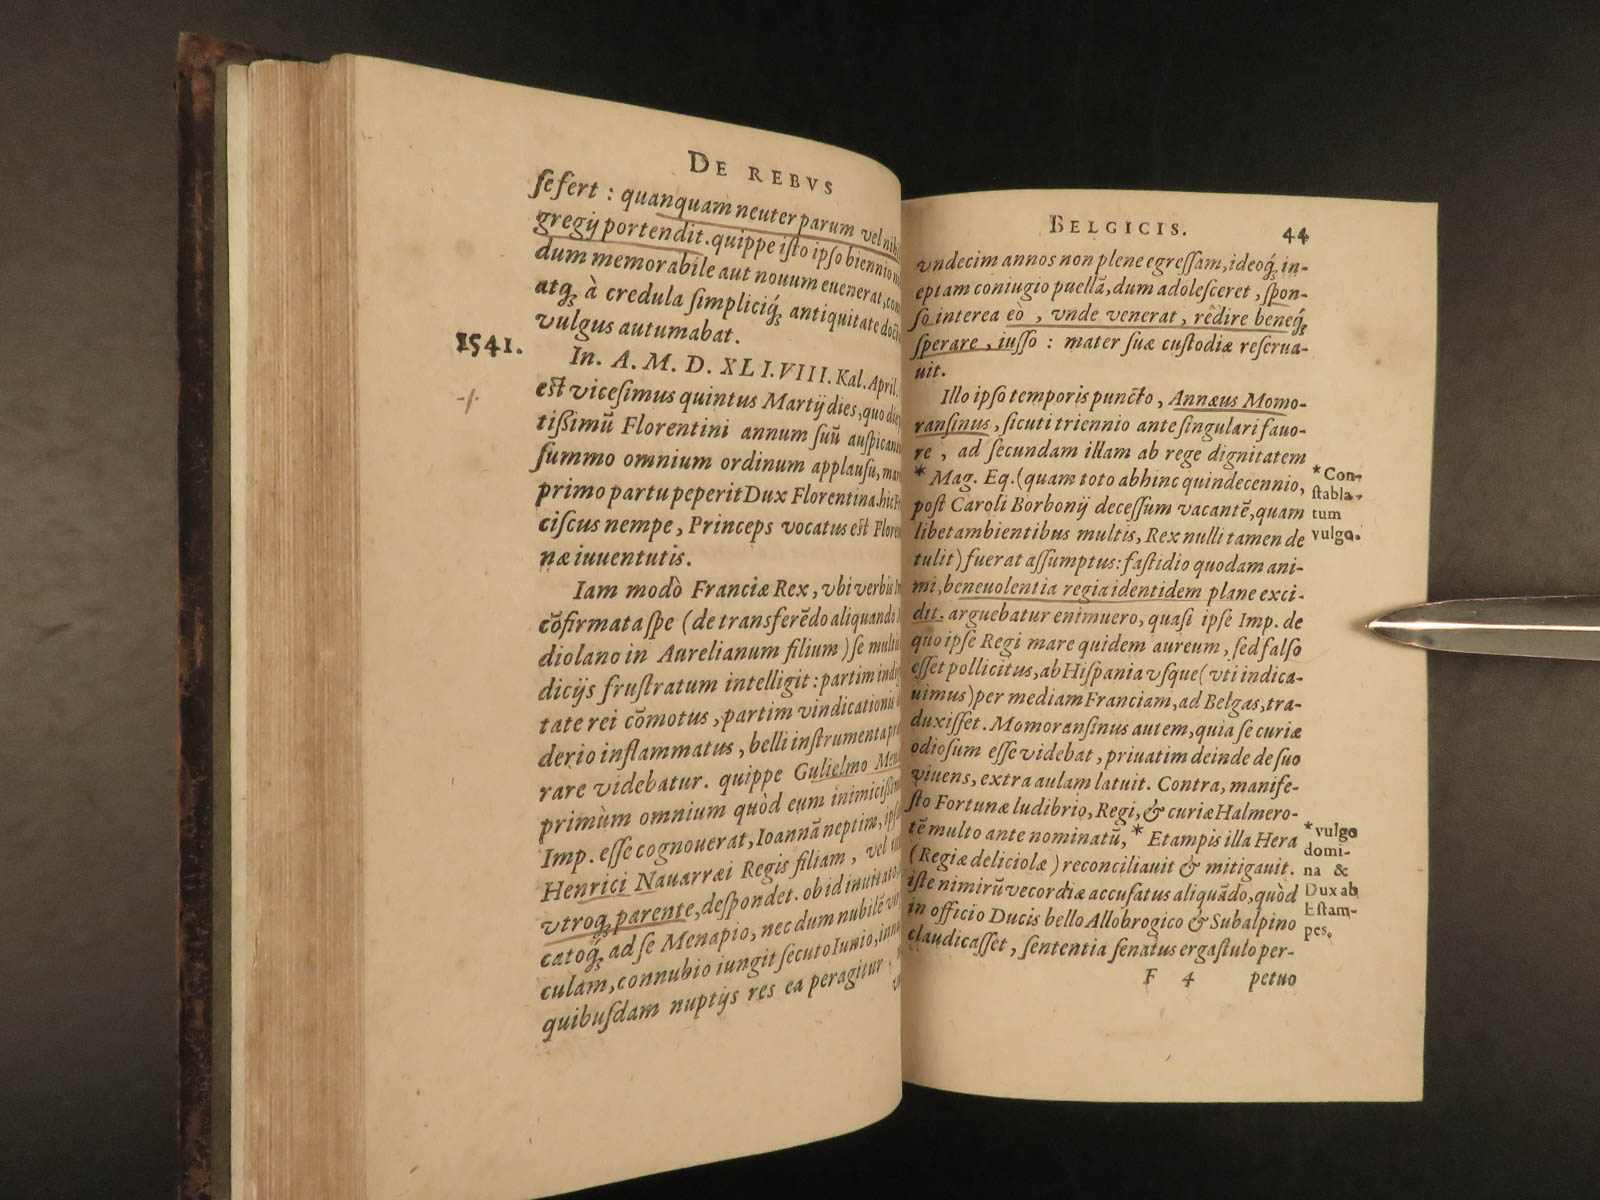 DE REBVS
ſefert : quanquam neuter parum vel nihi
gregij portendit. quippe iſto ipſo biennio
dum memorabile aut nouum euenerat, con
atq́ꝫ à credula ſimpliciq́ꝫ antiquitate doct
vulgus autumabat.
1541.
In. A. M. D. XLI. VIII. Kal. April.
eſt viceſimus quintus Martij dies, quo die
tiſſimũ Florentini annum ſuũ auſpican
ſummo omnium ordinum applauſu, mar
primo partu peperit Dux Florentina. hic
ciſcus nempe, Princeps vocatus eſt Floren
næ iuuentutis.
Iam modò Franciæ Rex, vbi verbis
cõfirmata ſpe (de transferẽdo aliquando
diolano in Aurelianum filium) ſe multis
dicijs fruſtratum intelligit: partim indig
tate rei cõmotus, partim vindicationis
derio inflammatus, belli inſtrumenta
rare videbatur. quippe Gulielmo
primùm omnium quòd eum inimiciſſimũ
Imp. eſſe cognouerat, Ioannã neptim,
Henrici Nauarræi Regis filiam, vel
vtroq́ꝫ parente, deſpondet. ob id inuitato,
catoq́ꝫ ad ſe Menapio, nec dum nubilẽ
culam, connubio iungit ſecuto Iunio,
quibuſdam nuptijs res ea peragitur,
BELGICIS. 44
vndecim annos non plene egreſſam, ideoq́ꝫ in-
eptam coniugio puellã, dum adoleſceret, ſpon-
ſo interea eò, vnde venerat, rêdire beneq́ꝫ
ſperare, iuſſo : mater ſuæ cuſtodiæ reſerua-
uit.
Illo ipſo temporis puncto, Annæus Momo-
ranſinus, ſicuti triennio ante ſingulari fauo-
re, ad ſecundam illam ab rege dignitatem
* Mag. Eq. (quam toto abhinc quindecennio,
poſt Caroli Borbonij deceſſum vacantẽ, quam
libet ambientibus multis, Rex nulli tamen de
tulit) fuerat aſſumptus: faſtidio quodam ani-
mi, beneuolentia regia identidem plane exci-
dit. arguebatur enimuero, quaſi ipſe Imp. de
quo ipſe Regi mare quidem aureum, ſed falſo
eſſet pollicitus, ab Hiſpania vſque (vti indica-
uimus) per mediam Franciam, ad Belgas, tra-
duxiſſet. Momoranſinus autem, quia ſe curiæ
odioſum eſſe videbat, priuatim deinde de ſuo
viuens, extra aulam latuit. Contra, manife-
ſto Fortunæ ludibrio, Regi, & curiæ Halmero-
tẽ multo ante nominatũ, * Etampis illa Hera
(Regiæ deliciolæ) reconciliauit & mitigauit.
iſte nimirũ vecordiæ accuſatus aliquãdo, quòd
in officio Ducis bello Allobrogico & Subalpino
claudicaſſet, ſententia ſenatus ergaſtulo per-
F 4 petuo
* Con-
ſtabla-
tum
vulgo.
* vulgo
domi-
na &
Dux ab
Eſtam-
pes.